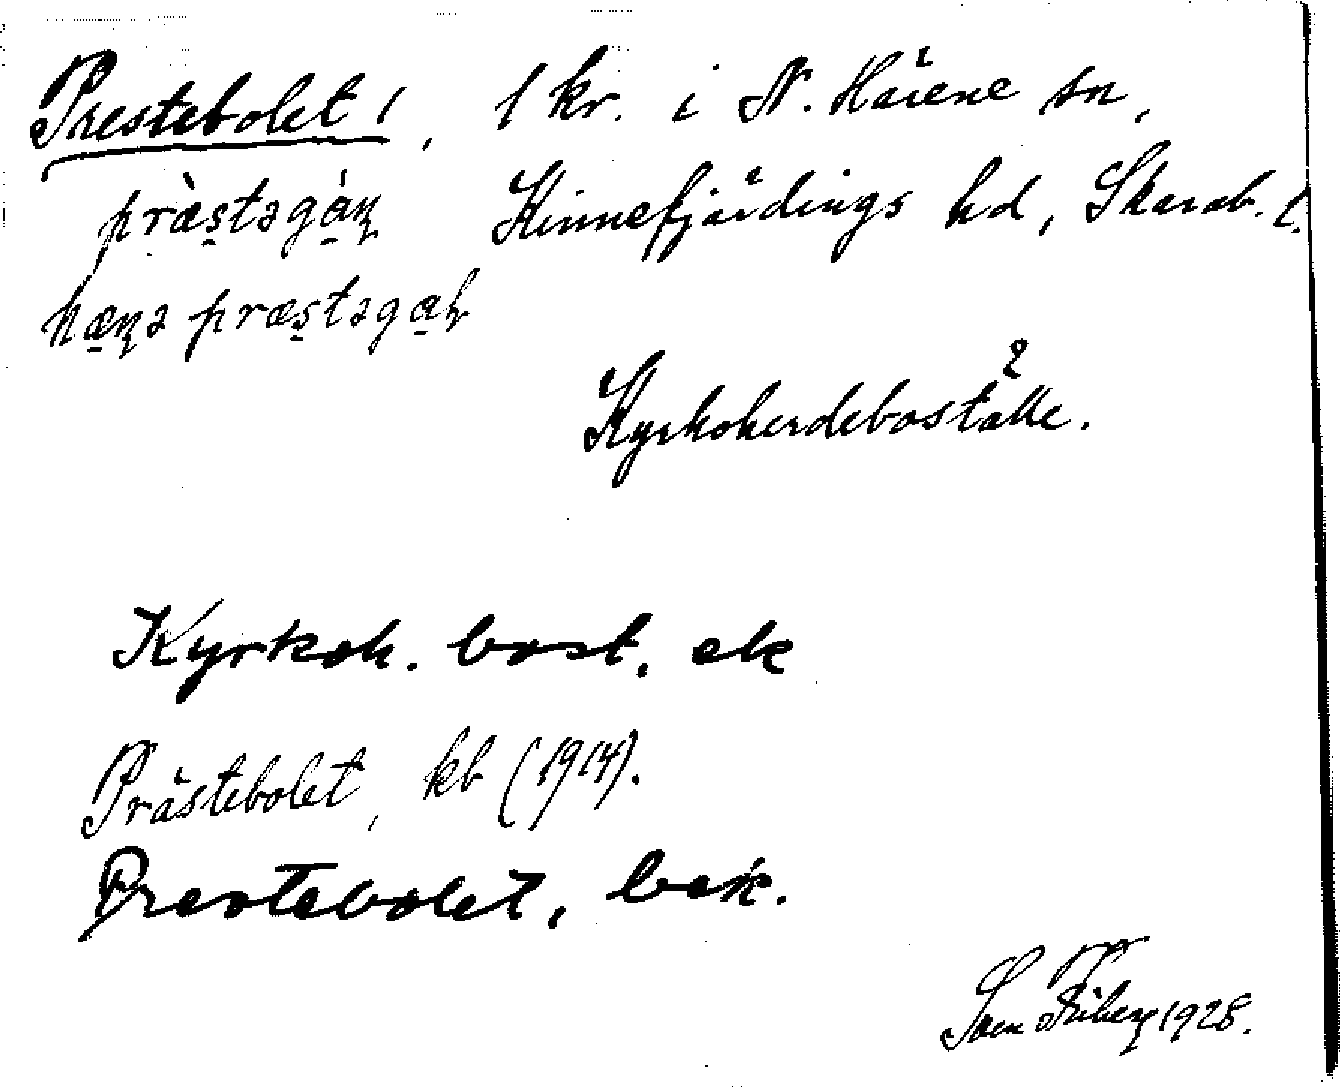 Prestebolet 1, 1 kr. i N. Härene sn,
præstəgáɳ Kinnefjärdings hd, Skarab. l.
hæɳə præstəgaɳ
Kyrkoherdeboställe.
Kyrkoh. bost. ek
Prästebolet, kb (1914).
Prestebolet, bek.
Sven Friberg 1928.